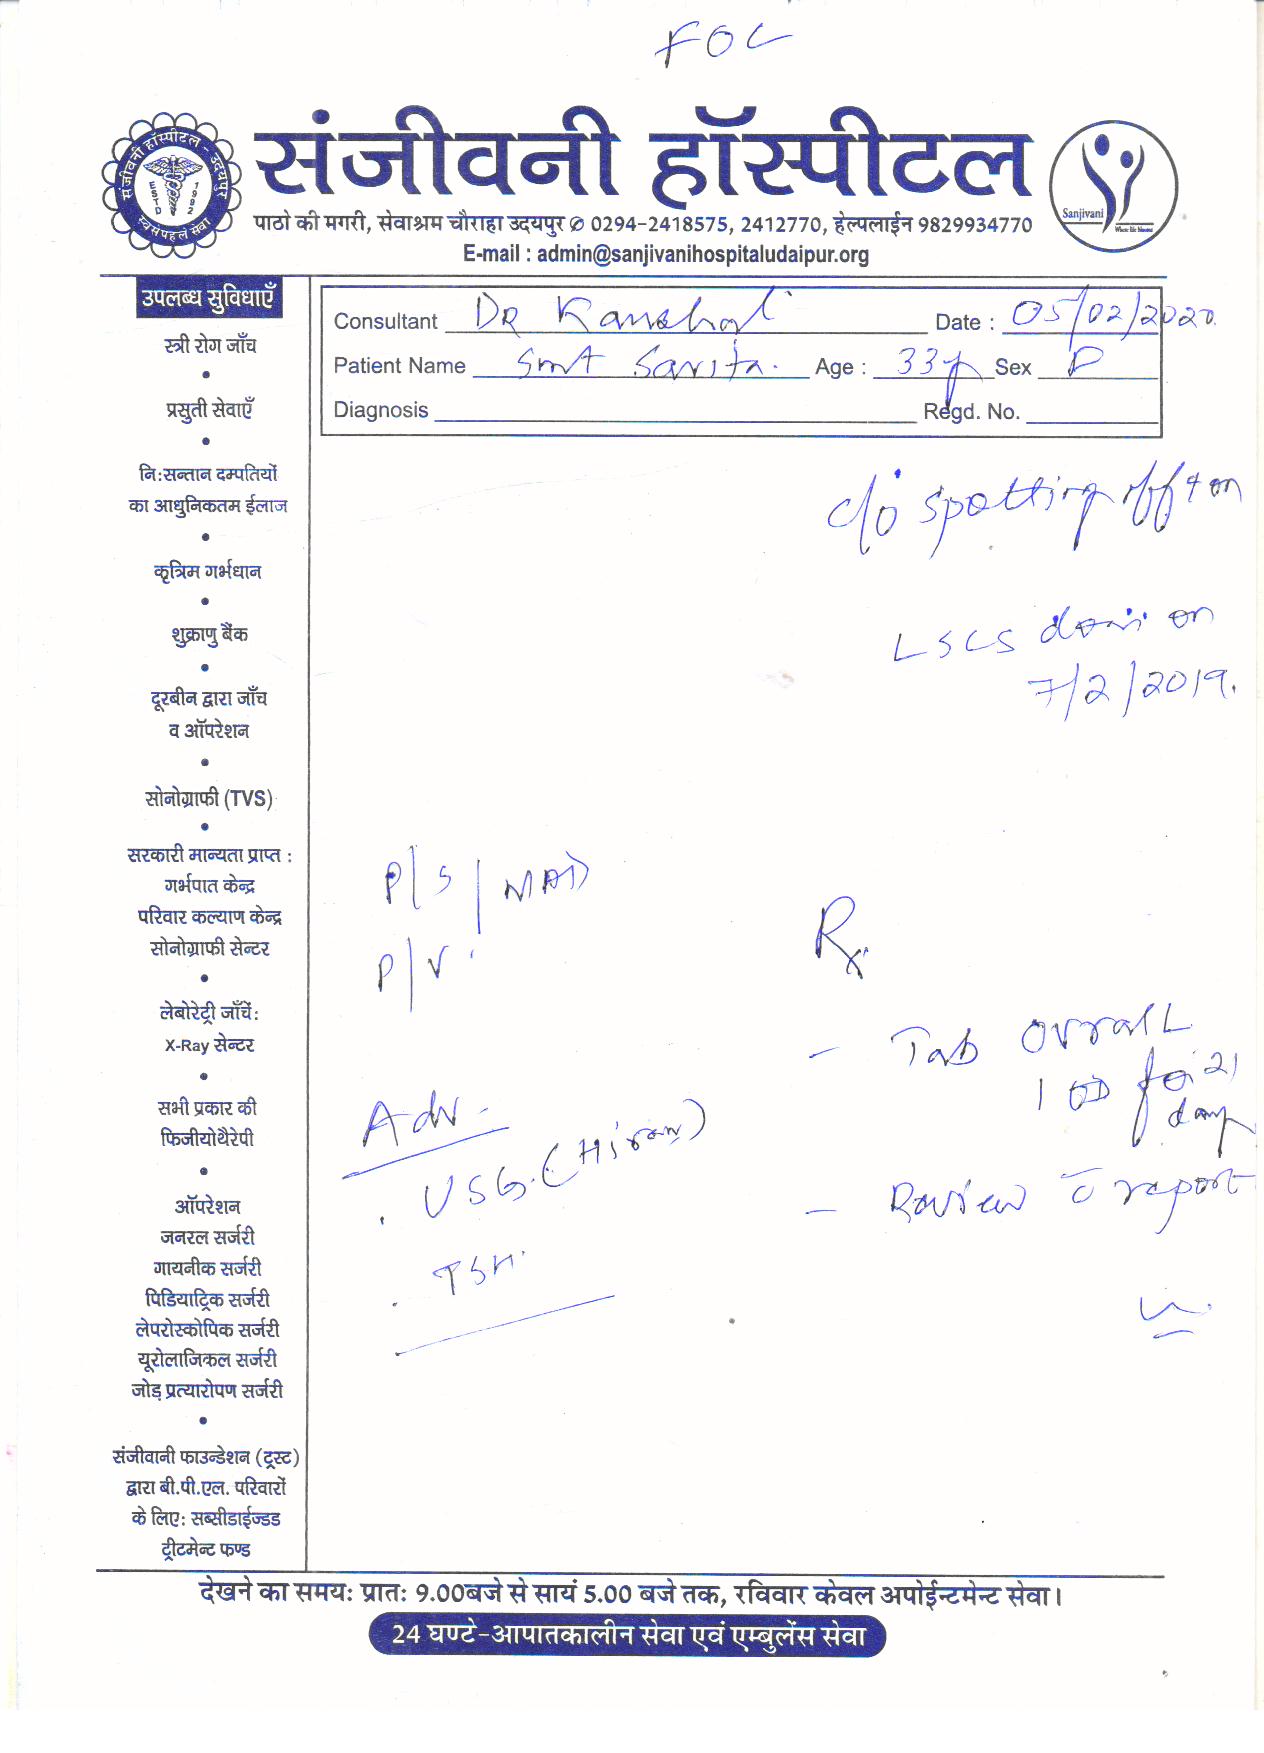 FOC
संजीवनी हॉस्पीटल - उदयपुर
ESTD 1992
स्वसंपहले सेवा
संजीवनी हॉस्पीटल
पाठो की मगरी, सेवाश्रम चौराहा उदयपुर ✆ 0294-2418575, 2412770, हेल्पलाईन 9829934770
E-mail : admin@sanjivanihospitaludaipur.org
Sanjivani
उपलब्ध सुविधाएँ
स्त्री रोग जाँच
•
प्रसुती सेवाएँ
•
नि:सन्तान दम्पतियों
का आधुनिकतम ईलाज
•
कृत्रिम गर्भधान
•
शुक्राणु बैंक
•
दूरबीन द्वारा जाँच
व ऑपरेशन
•
सोनोग्राफी (TVS)
•
सरकारी मान्यता प्राप्त :
गर्भपात केन्द्र
परिवार कल्याण केन्द्र
सोनोग्राफी सेन्टर
•
लेबोरेट्री जाँचें:
X-Ray सेन्टर
•
सभी प्रकार की
फिजीयोथैरेपी
•
ऑपरेशन
जनरल सर्जरी
गायनीक सर्जरी
पिडियाट्रिक सर्जरी
लेपरोस्कोपिक सर्जरी
यूरोलाजिकल सर्जरी
जोड़ प्रत्यारोपण सर्जरी
•
संजीवानी फाउन्डेशन (ट्रस्ट)
द्वारा बी.पी.एल. परिवारों
के लिए: सब्सीडाईज्डड
ट्रीटमेन्ट फण्ड
Consultant DR Date : 05/02/2020
Patient Name Smt Sarita. Age : 33y Sex
Diagnosis Regd. No.
c/o spotting off & on
LSCS done on
7/2/2019.
P/S / NAD
P/V
Rx
- Tab Ovral L
1 OD for 21
days
- Review c̄ report
Adv -
. USG. (Hiran)
. TSH.
देखने का समय: प्रात: 9.00बजे से सायं 5.00 बजे तक, रविवार केवल अपोईन्टमेन्ट सेवा।
24 घण्टे-आपातकालीन सेवा एवं एम्बुलेंस सेवा